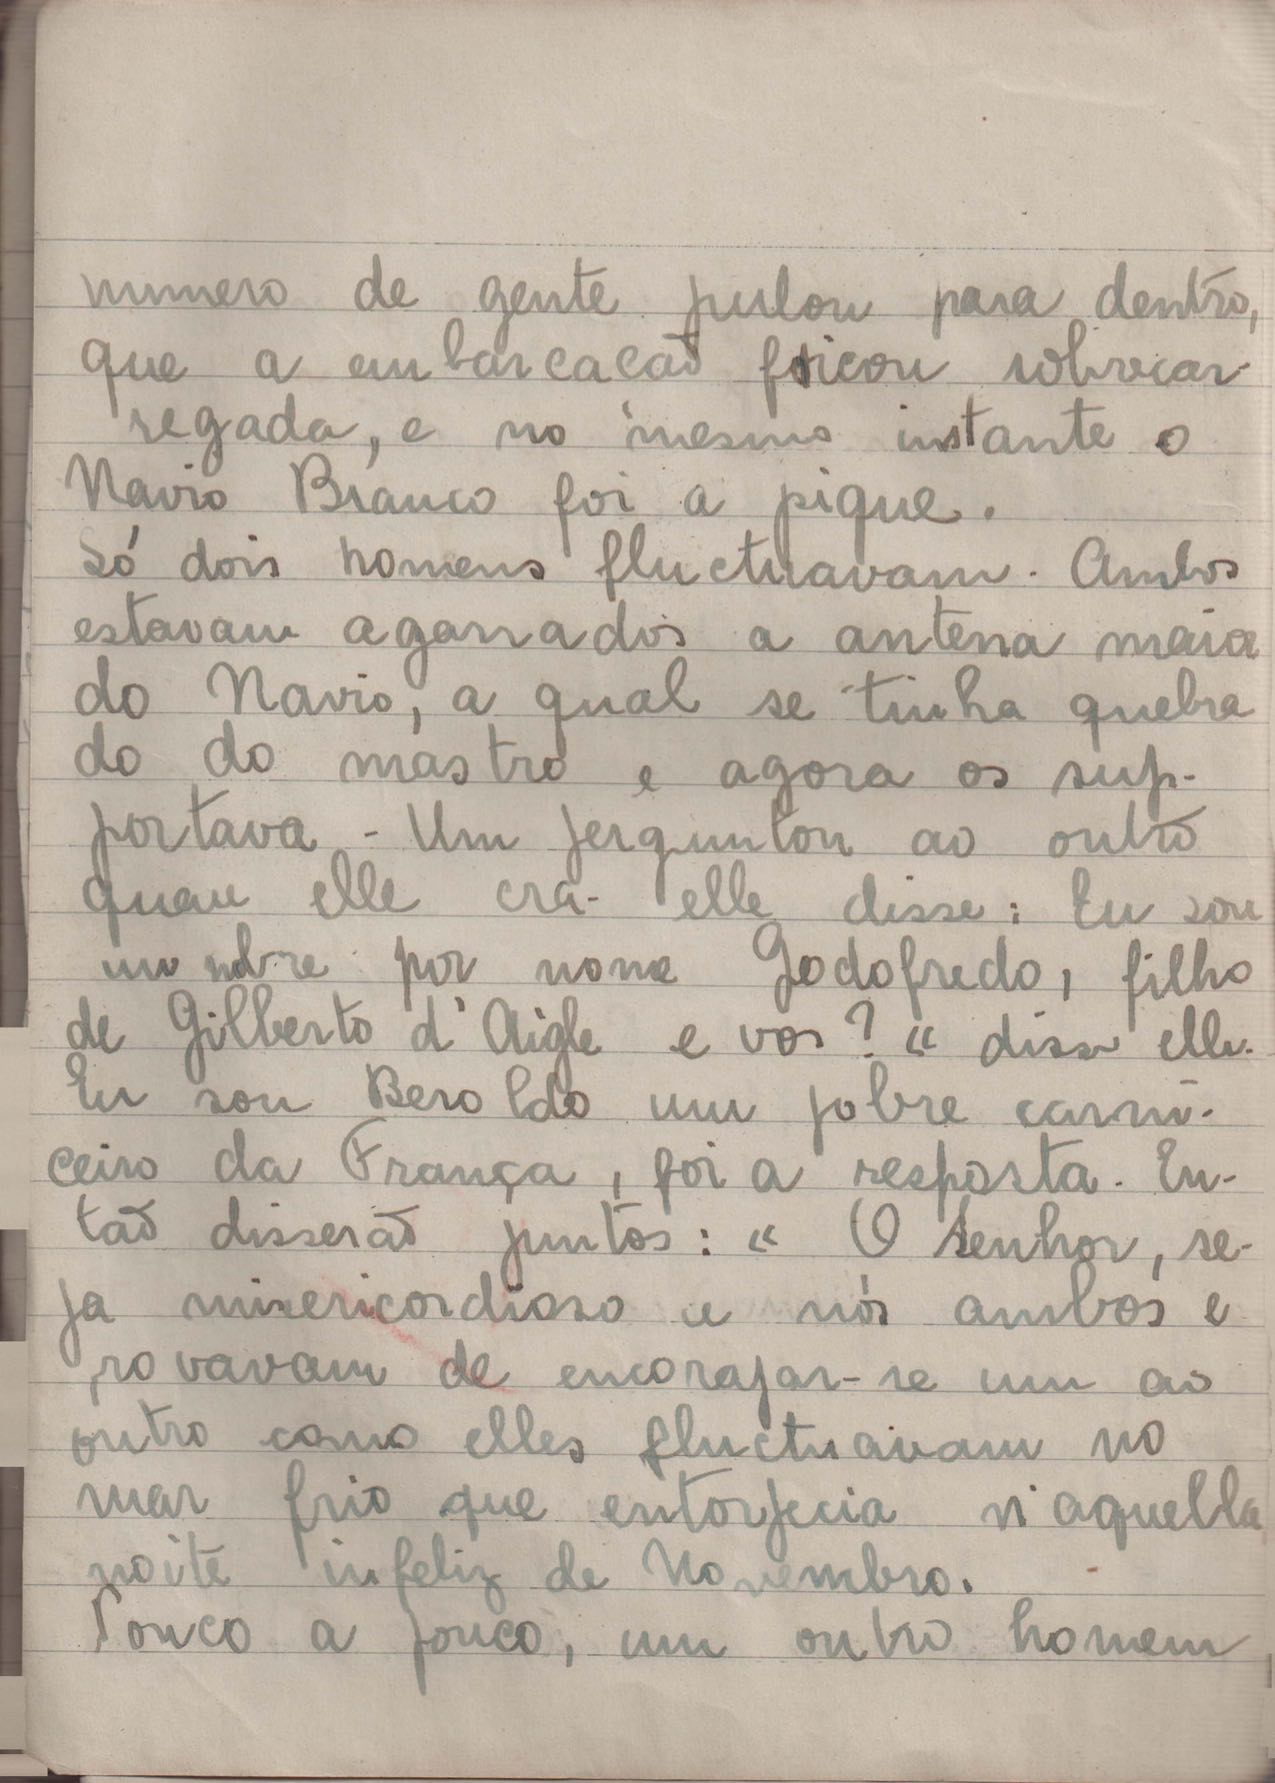 numero de gente pulou para dentro,
que a embarcacaõ ficou sobrecar-
regada, e no mesmo instante o
Navio Branco foi a pique.
Só dois homens fluctuavam. Ambos
estavam agarrados a antena maia
do Navio, a qual se tinha quebra
do do mastro e agora os sup-
portava - Um perguntou ao outro
quem elle era- elle disse: Eu sou
um nobre por nome Godofredo, filho
de Gilberto d'Aigle e vos? « disse elle.
Eu sou Beroldo um pobre carni-
ceiro da França, foi a resposta. En-
taõ disseraõ juntos: « O Senhor, se-
ja misericordioso a nós ambos e
rovavam de encorajar-se um ao
outro como elles fluctuavam no
mar frio que entorpecia n'aquella
noite infeliz de Novembro.
Pouco a pouco, um outro homem